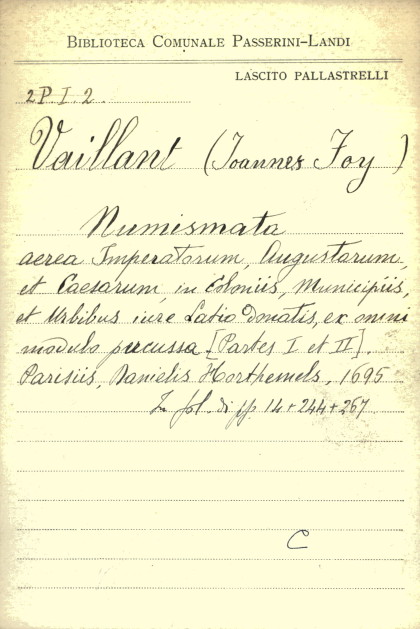 BIBLIOTECA COMUNALE PASSERINI-LANDI
LASCITO PALLASTRELLI
2P. I. 2.
Vaillant (Joannes Foy)
Numismata
aerea Imperatorum, Augustarum,
et Caesarum, in Coloniis, Municipiis,
et Urbibus iure Latio donatis, ex omni
modulo percussa [Partes I et II].
Parisiis, Danielis Horthemels, 1695
In fol. di pp. 14+244+267
C